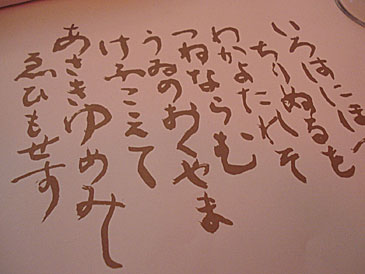 いろはにほへ
ちりぬるを
わかよたれそ
つねならむ
うゐのおくやま
けふこえて
あさきゆめみし
ゑひもせす